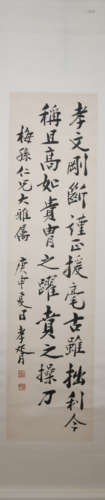 孝文剛斷謹正援毫古雖拙利今
稱且高如貴胄之躍賁之操刀
梅孫仁兄大雅屬
庚申夏日孝胥